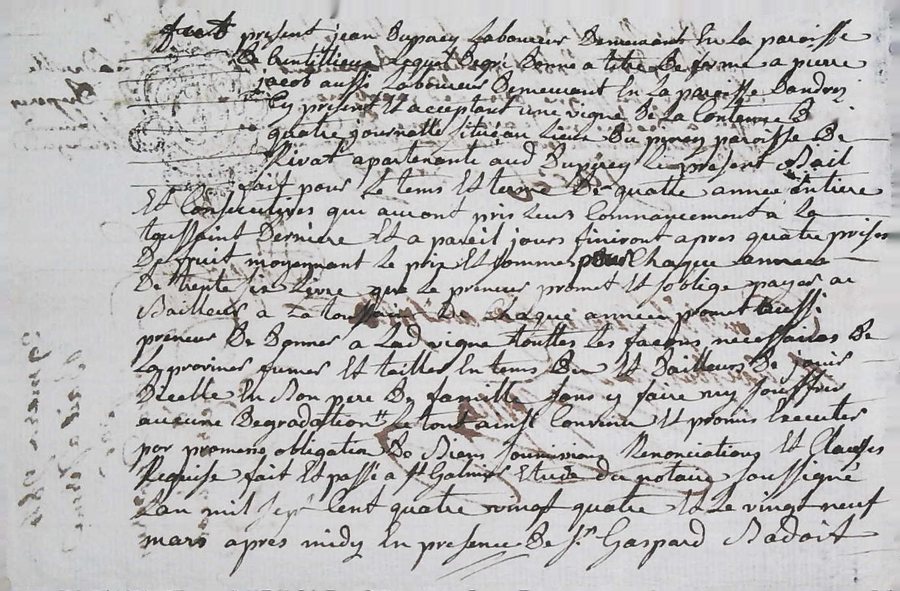 fut present jean Duparey Laboureur Demeurant En La paroisse
De Legqt Degré Donne a titre De ferme a pierre
jacob aussi Laboureur Demeurant En La paroisse Dandrezi
Cy present Et acceptant une vigne De La Contenue De
quatre journalle situé au Lieu Du paroisse De
Rivat apartenante aud Duparey Le present Bail
fait pour Le tems Et terme De quatre année entiere
Et Consecutives qui auront pris Leurs Commancement à La
toussaint Derniere Et a pareil jours finiront apres quatre prises
De fruit moyennant Le prix Et somme pour Chaque année
De trente six Livre que Le preneur promet Et soblige payer au
Bailleur a La toussaint De chaque année promet aussi
preneur De Donner a Lad vigne touttes Les façons necessaires De
La proviner fumer Et tailler En tems Du Et Dailleurs De jouir
Dicelle En Bon pere De famille sans y faire ny souffrir
aucune Degradation Le tout ainsi Convenu Et promis Executer
par promesse obligation De Biens soumissions Renonciations Et Clauses
Requise fait Et passé a St Galmier Etude du notaire soussigné
Lan mil sept Cent quatre vingt quatre Et Le vingt neuf
mars apres midy En presence De Sr. Gaspard Badoit